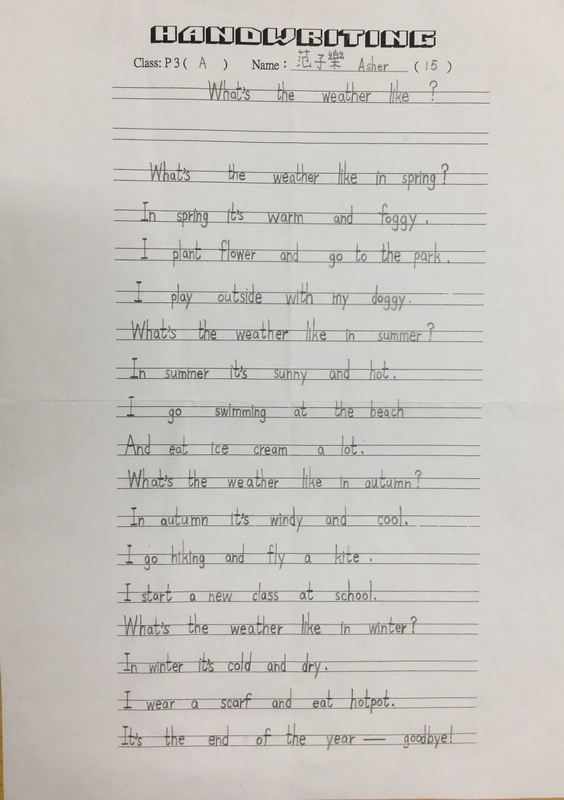 HANDWRITING
Class: P 3 ( A ) Name : 范子樂 Asher ( 15 )
What's the weather like ?
What's the weather like in spring ?
In spring it's warm and foggy .
I plant flower and go to the park .
I play outside with my doggy.
What's the weather like in summer ?
In summer it's sunny and hot.
I go swimming at the beach
And eat ice cream a lot.
What's the weather like in autumn ?
In autumn it's windy and cool.
I go hiking and fly a kite .
I start a new class at school.
What's the weather like in winter ?
In winter it's cold and dry.
I wear a scarf and eat hotpot.
It's the end of the year — goodbye!